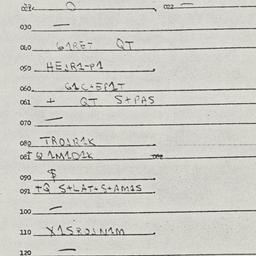 030 —
040 61RET QT
050 HEJR1-P1
060 61C+EP1T
061 + QT S+PAS
070 —
080 TR01R1K
081 Q1M1D1K
090 $
091 +Q S+LAT-S+AM1S
100 —
110 X1SR01N1M
120 —